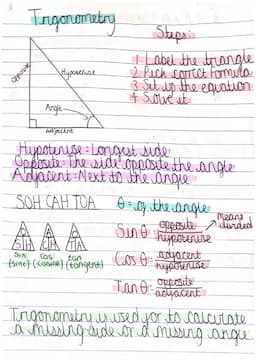 Trigonometry
Steps:
1 Label the triangle
2 Pick correct formula
3 Set up the equation
4 Solve it
Opposite
Hypotenuse
Angle
Adjacent
Hypotenuse = Longest side
Opposite = The side opposite the angle
Adjacent = Next to the angle
SOH CAH TOA
θ = of the angle
Sin θ = opposite / hypotenuse
means divided
O S H
A C H
O T A
Sin (sine)
Cos (cosine)
tan (tangent)
Cos θ = adjacent / hypotenuse
Tan θ = opposite / adjacent
Trigonometry is used for to calculate
a missing side or a missing angle